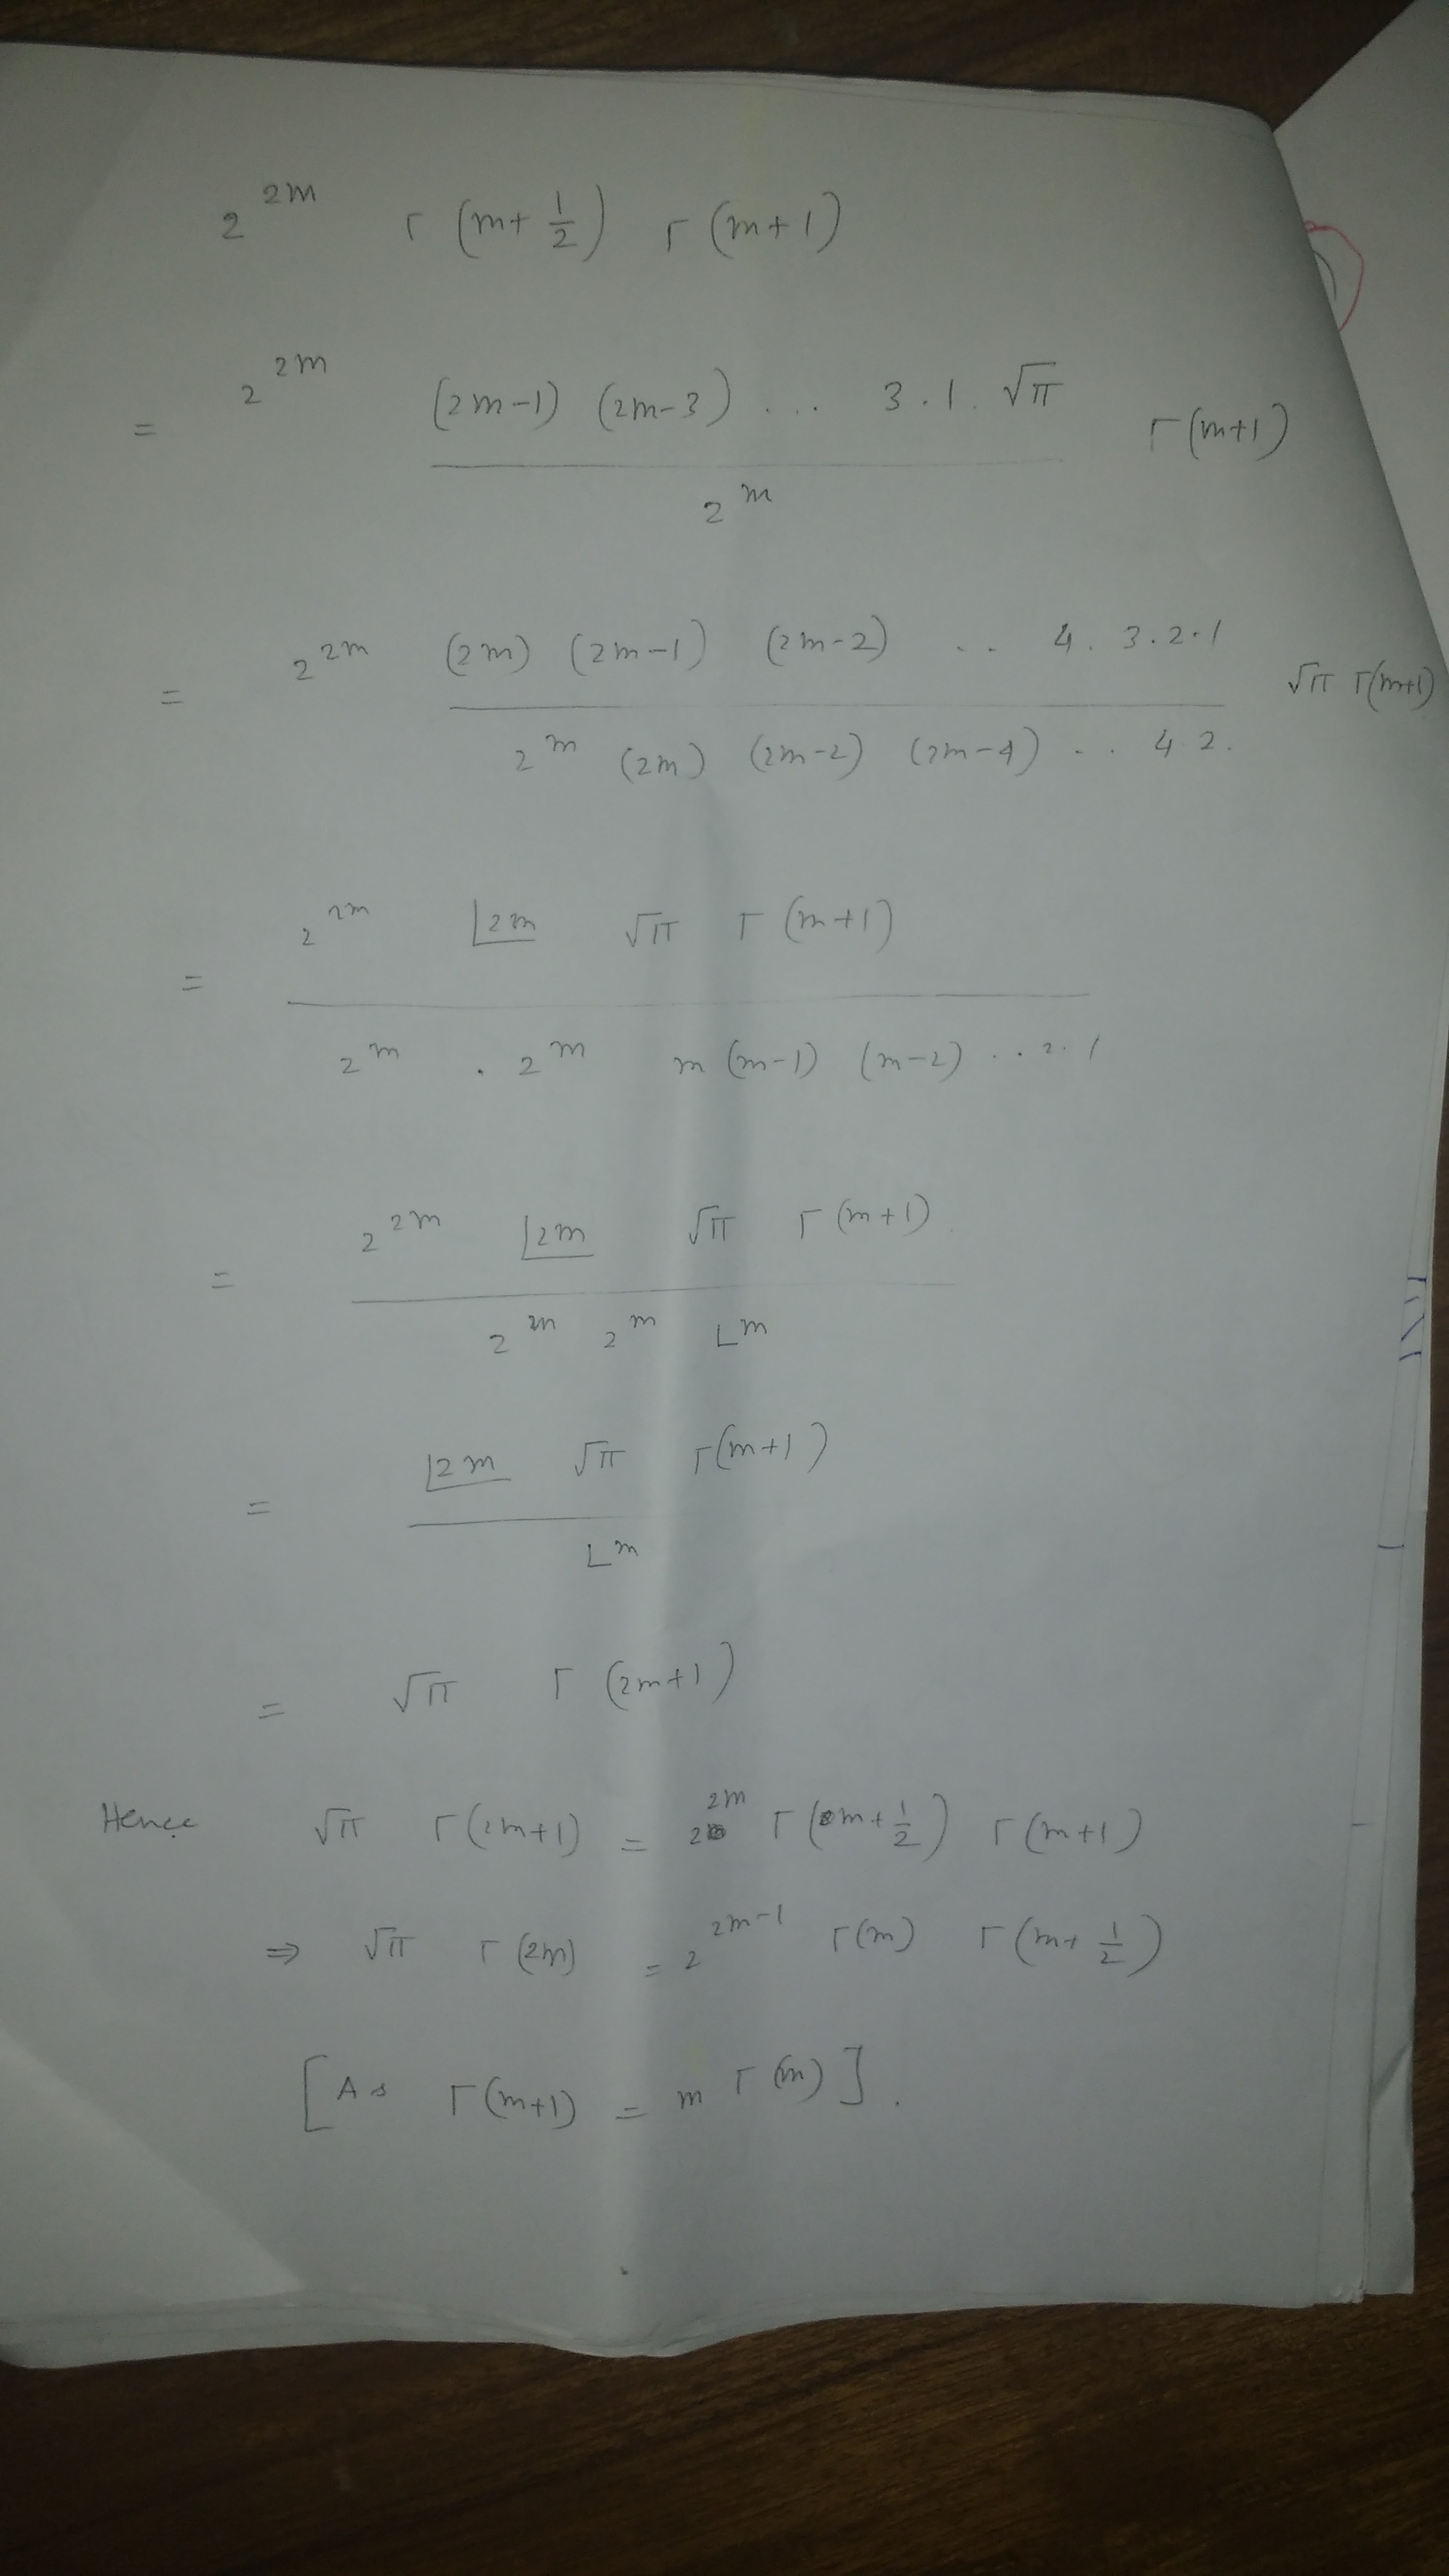 2^{2m} Γ(m+1/2) Γ(m+1)
= 2^{2m} \frac{(2m-1)(2m-3)... 3.1.√π}{2^m} Γ(m+1)
= 2^{2m} \frac{(2m)(2m-1)(2m-2) .. 4.3.2.1}{2^m (2m)(2m-2)(2m-4) .. 4.2.} √π Γ(m+1)
= \frac{2^{2m} |2m √π Γ(m+1)}{2^m . 2^m m(m-1)(m-2) .. 2.1}
= \frac{2^{2m} |2m √π Γ(m+1)}{2^m 2^m |m}
= \frac{|2m √π Γ(m+1)}{|m}
= √π Γ(2m+1)
Hence √π Γ(2m+1) = 2^{2m} Γ(m+1/2) Γ(m+1)
⇒ √π Γ(2m) = 2^{2m-1} Γ(m) Γ(m+1/2)
[As Γ(m+1) = m Γ(m)].